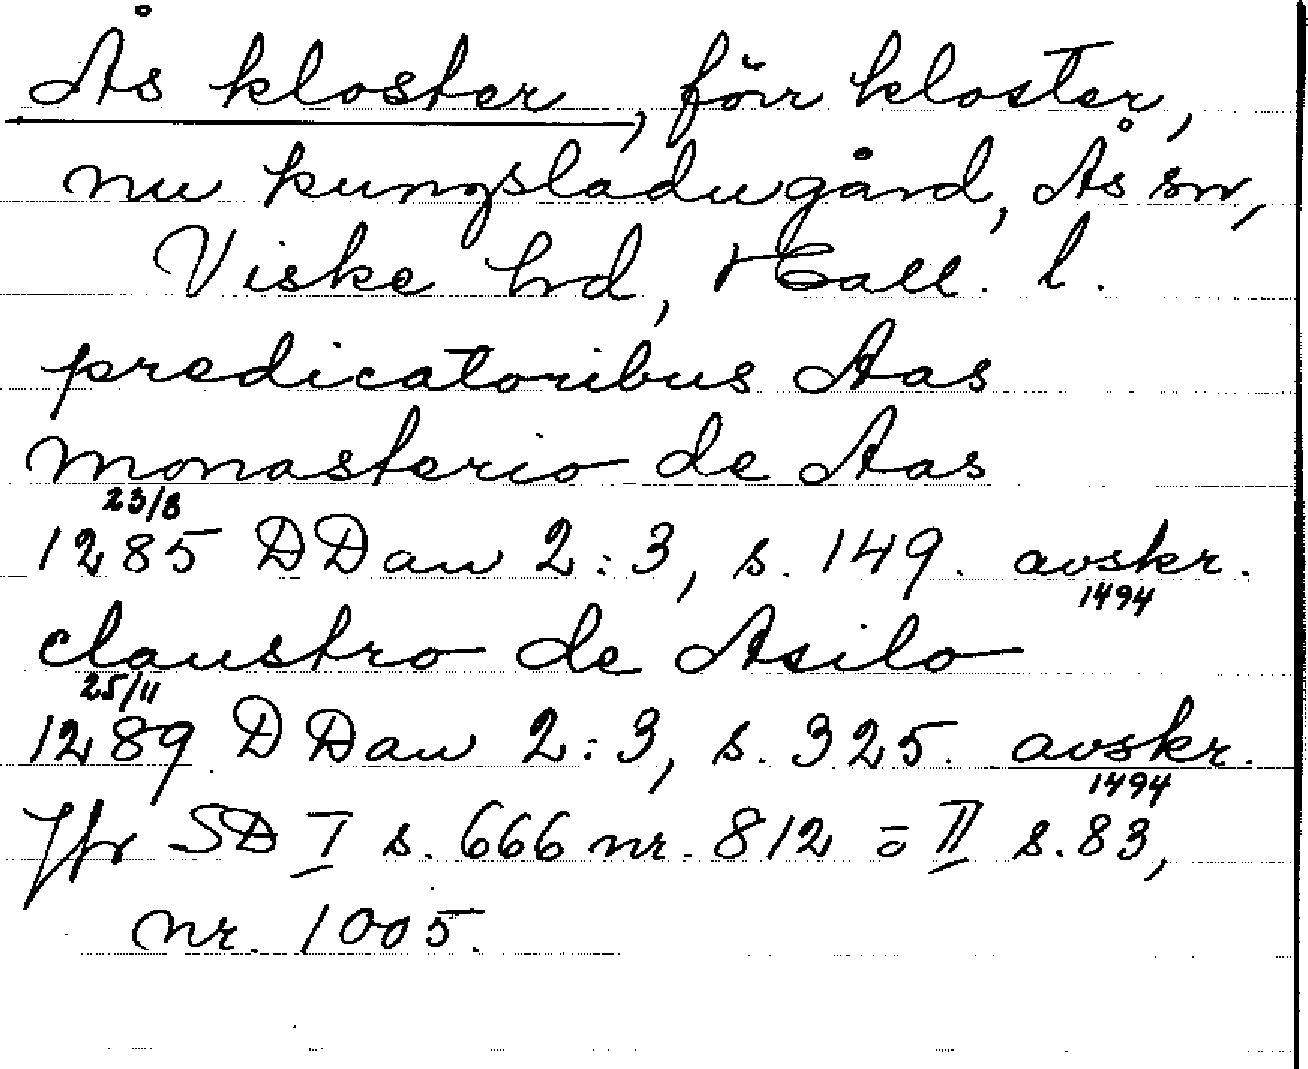 Ås kloster, förr kloster,
nu kungsladugård, Ås sn,
Viske hd, Hall. l.
predicatoribus Aas
monasterio de Aas
23/8
1285 DDan 2:3, s. 149. avskr.
1494
claustro de Asilo
25/11
1289 DDan 2:3, s. 325. avskr.
1494
Jfr SD I s. 666 nr. 812 = II s. 83,
nr. 1005.